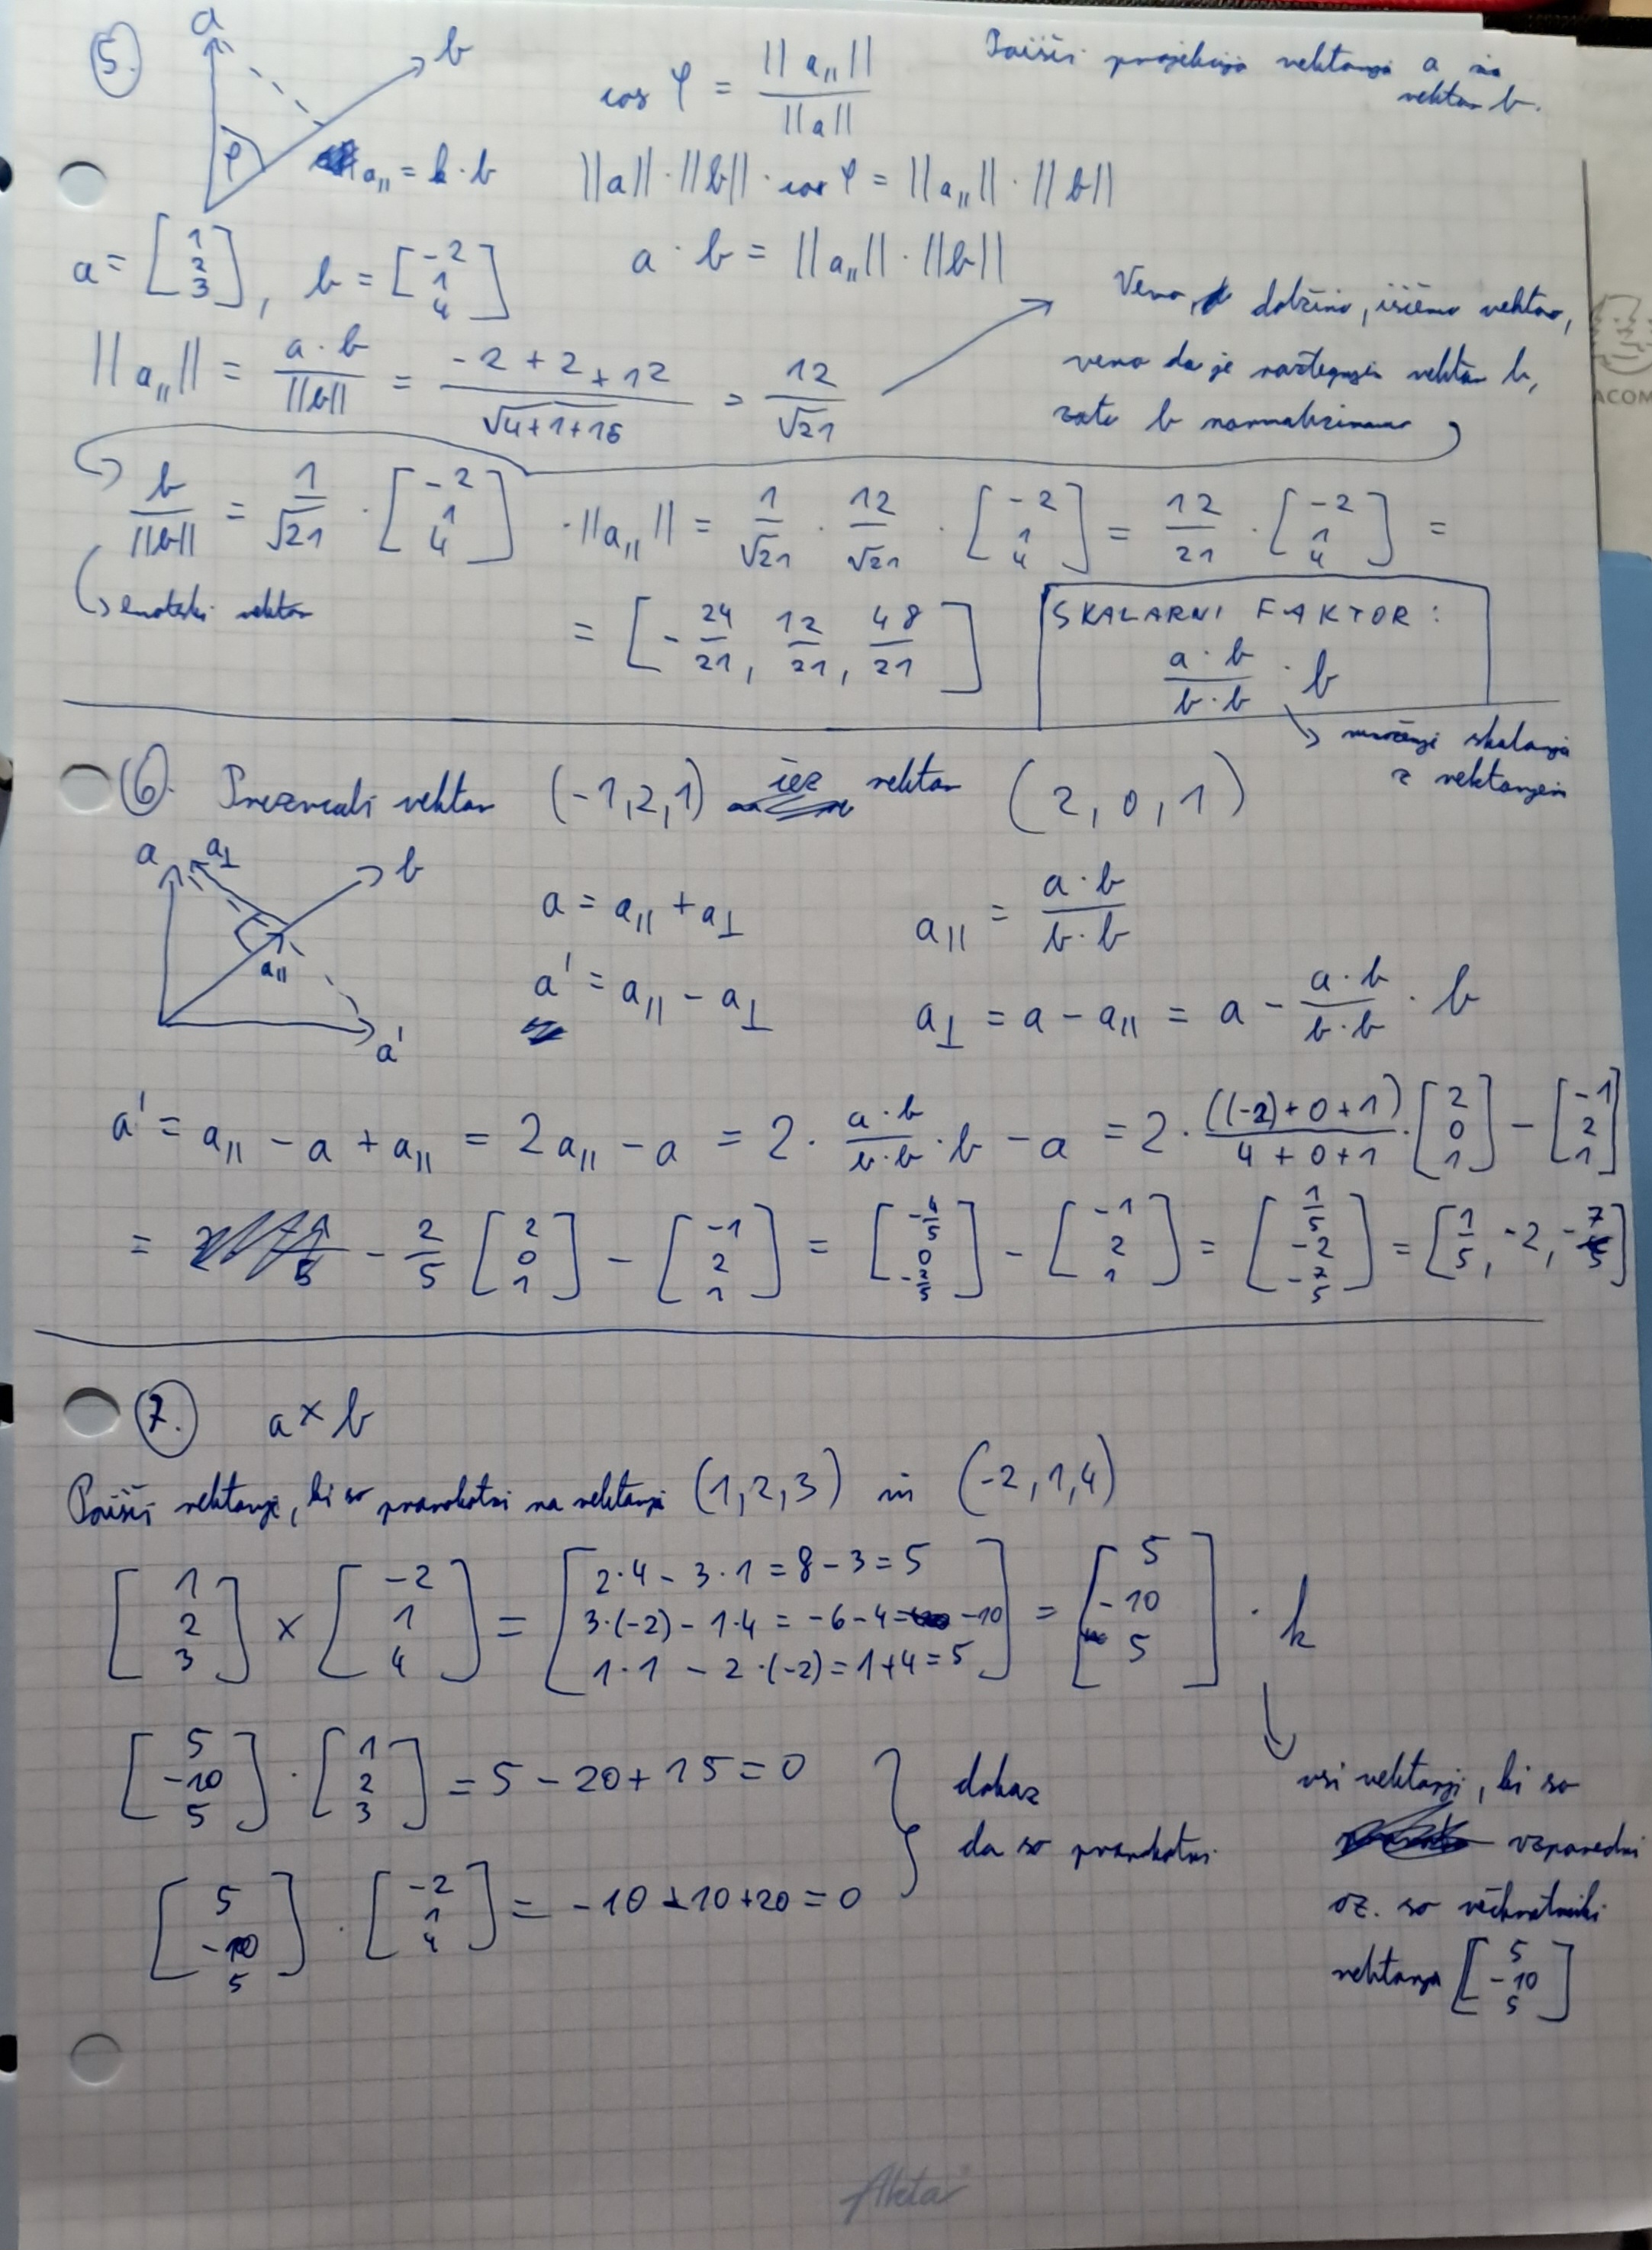 5. a b cos φ = ||a_∥|| / ||a|| Poišči projekcijo vektorja a na vektor b.
φ a_∥ = k · b ||a|| · ||b|| · cos φ = ||a_∥|| · ||b||
a = [1 2 3], b = [-2 1 4] a · b = ||a_∥|| · ||b||
||a_∥|| = a · b / ||b|| = -2 + 2 + 12 / √4+1+16 = 12 / √21
Vemo dolžino, iščemo vektor,
vemo da je raztegnjen vektor b,
zato b normaliziramo
b / ||b|| = 1 / √21 · [-2 1 4] · ||a_∥|| = 1 / √21 · 12 / √21 · [-2 1 4] = 12 / 21 · [-2 1 4] =
enotski vektor
= [- 24/21, 12/21, 48/21]
SKALARNI FAKTOR:
a · b / b · b · b
množenje skalarja
z vektorjem
6. Prezrcali vektor (-1,2,1) čez vektor (2,0,1)
a a⊥ b a_∥ a'
a = a_∥ + a⊥ a_∥ = a · b / b · b
a' = a_∥ - a⊥ a⊥ = a - a_∥ = a - a · b / b · b · b
a' = a_∥ - a + a_∥ = 2a_∥ - a = 2 · a · b / b · b · b - a = 2 · ((-2)+0+1) / 4+0+1 · [2 0 1] - [-1 2 1]
= - 2/5 [2 0 1] - [-1 2 1] = [-4/5 0 -2/5] - [-1 2 1] = [1/5 -2 -7/5] = [1/5, -2, -7/5]
7. a × b
Poišči vektorje, ki so pravokotni na vektorja (1,2,3) in (-2,1,4)
[1 2 3] × [-2 1 4] = [2·4 - 3·1 = 8 - 3 = 5
3·(-2) - 1·4 = -6 - 4 = -10
1·1 - 2·(-2) = 1+4 = 5] = [5 -10 5] · k
[5 -10 5] · [1 2 3] = 5 - 20 + 15 = 0
[5 -10 5] · [-2 1 4] = -10 -10 +20 = 0
dokaz
da so pravokotni
vsi vektorji, ki so
vzporedni
oz. so večkratniki
vektorja [5 -10 5]
Akta
ACOM